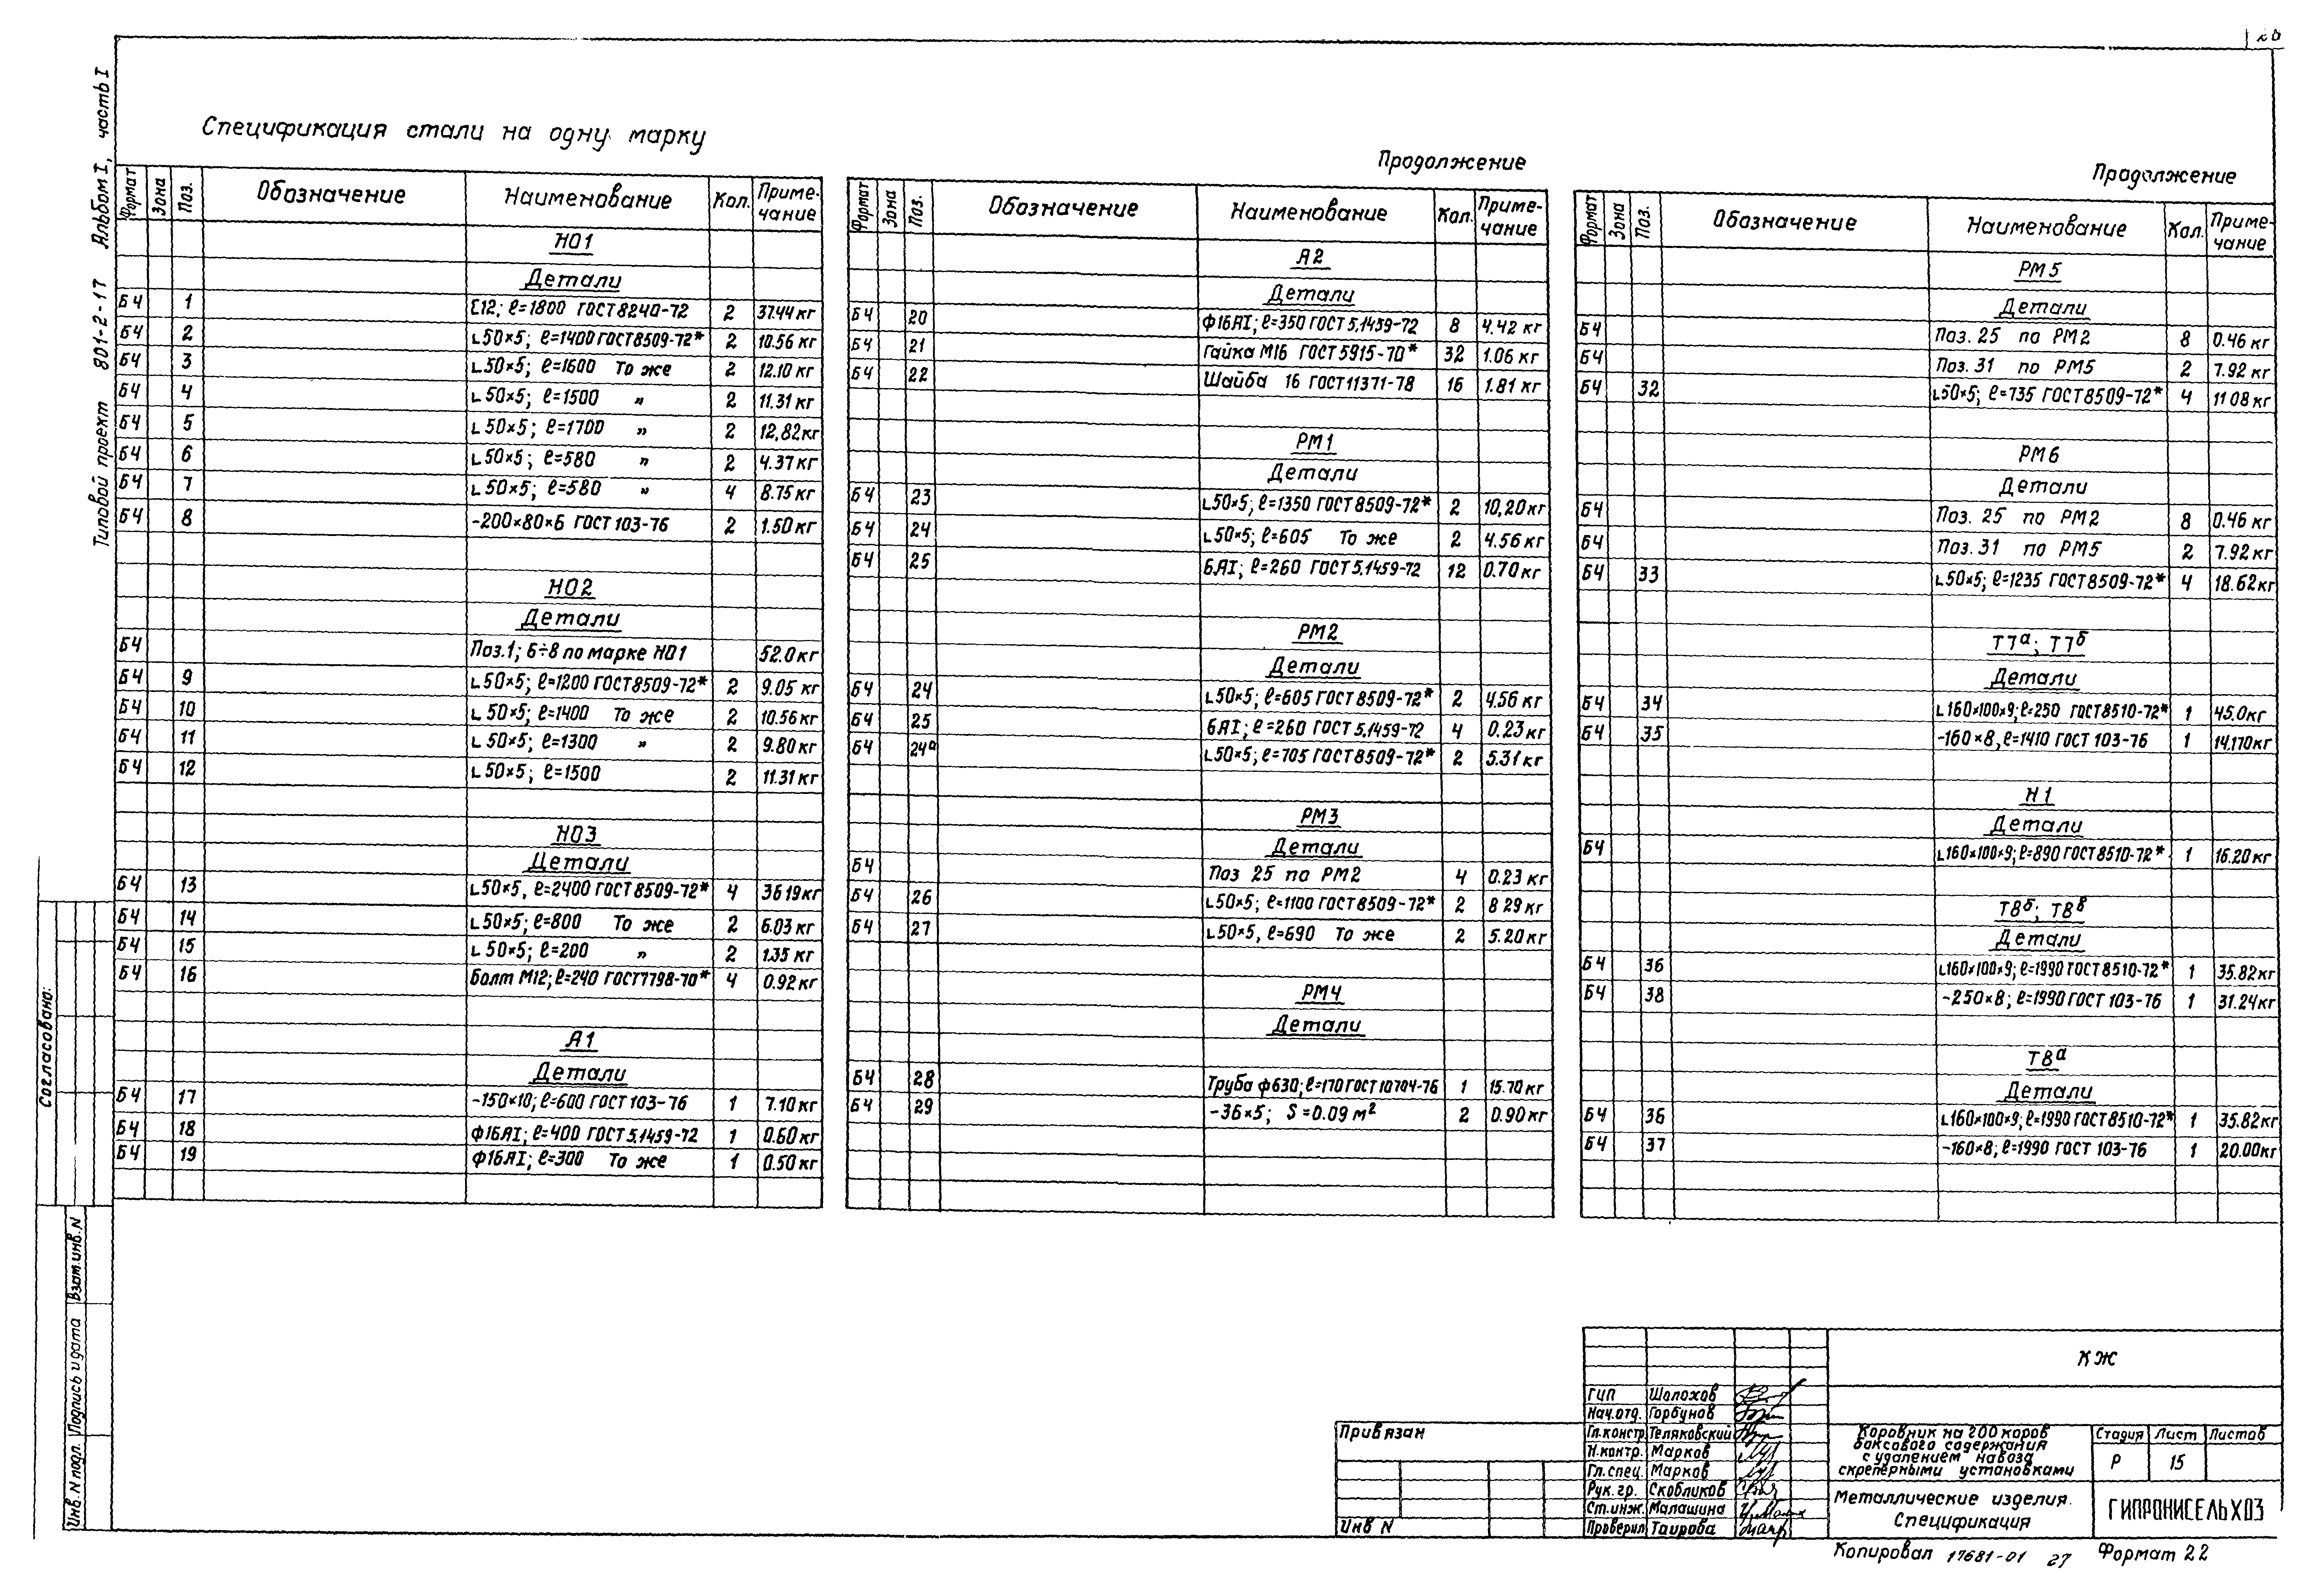 20
Типовой проект 801-2-17 Альбом I, часть I
Спецификация стали на одну марку
Формат Зона Поз. Обозначение Наименование Кол. Приме-чание
НО1
Детали
БЧ 1 [12; ℓ=1800 ГОСТ 8240-72 2 37.44 кг
БЧ 2 ∟50×5; ℓ=1400 ГОСТ 8509-72* 2 10.56 кг
БЧ 3 ∟50×5; ℓ=1600 То же 2 12.10 кг
БЧ 4 ∟50×5; ℓ=1500 " 2 11.31 кг
БЧ 5 ∟50×5; ℓ=1700 " 2 12,82 кг
БЧ 6 ∟50×5; ℓ=580 " 2 4.37 кг
БЧ 7 ∟50×5; ℓ=580 " 4 8.75 кг
БЧ 8 -200×80×6 ГОСТ 103-76 2 1.50 кг
НО2
Детали
БЧ Поз.1; 6÷8 по марке НО1 52.0 кг
БЧ 9 ∟50×5; ℓ=1200 ГОСТ 8509-72* 2 9.05 кг
БЧ 10 ∟50×5; ℓ=1400 То же 2 10.56 кг
БЧ 11 ∟50×5; ℓ=1300 " 2 9.80 кг
БЧ 12 ∟50×5; ℓ=1500 2 11.31 кг
НО3
Детали
БЧ 13 ∟50×5, ℓ=2400 ГОСТ 8509-72* 4 36 19 кг
БЧ 14 ∟50×5; ℓ=800 То же 2 6.03 кг
БЧ 15 ∟50×5; ℓ=200 " 2 1.35 кг
БЧ 16 Болт М12; ℓ=240 ГОСТ 7798-70* 4 0.92 кг
А1
Детали
БЧ 17 -150×10; ℓ=600 ГОСТ 103-76 1 7.10 кг
БЧ 18 Ф16АI; ℓ=400 ГОСТ 5.1459-72 1 0.60 кг
БЧ 19 Ф16АI; ℓ=300 То же 1 0.50 кг
Продолжение
Формат Зона Поз. Обозначение Наименование Кол. Приме-чание
А2
Детали
БЧ 20 Ф16АI; ℓ=350 ГОСТ 5.1459-72 8 4.42 кг
БЧ 21 Гайка М16 ГОСТ 5915-70* 32 1.06 кг
БЧ 22 Шайба 16 ГОСТ 11371-78 16 1.81 кг
РМ1
Детали
БЧ 23 ∟50×5; ℓ=1350 ГОСТ 8509-72* 2 10,20 кг
БЧ 24 ∟50×5; ℓ=605 То же 2 4.56 кг
БЧ 25 6АI; ℓ=260 ГОСТ 5.1459-72 12 0.70 кг
РМ2
Детали
БЧ 24 ∟50×5; ℓ=605 ГОСТ 8509-72* 2 4.56 кг
БЧ 25 6АI; ℓ=260 ГОСТ 5.1459-72 4 0.23 кг
БЧ 24а ∟50×5; ℓ=705 ГОСТ 8509-72* 2 5.31 кг
РМ3
Детали
БЧ Поз 25 по РМ2 4 0.23 кг
БЧ 26 ∟50×5; ℓ=1100 ГОСТ 8509-72* 2 8 29 кг
БЧ 27 ∟50×5, ℓ=690 То же 2 5.20 кг
РМ4
Детали
БЧ 28 Труба ф630; ℓ=170 ГОСТ 10704-76 1 15.70 кг
БЧ 29 -36×5; S=0.09 м² 2 0.90 кг
Продолжение
Формат Зона Поз. Обозначение Наименование Кол. Приме-чание
РМ5
Детали
БЧ Поз. 25 по РМ2 8 0.46 кг
БЧ Поз. 31 по РМ5 2 7.92 кг
БЧ 32 ∟50×5; ℓ=735 ГОСТ 8509-72* 4 11 08 кг
РМ6
Детали
БЧ Поз. 25 по РМ2 8 0.46 кг
БЧ Поз. 31 по РМ5 2 7.92 кг
БЧ 33 ∟50×5; ℓ=1235 ГОСТ 8509-72* 4 18.62 кг
Т7а; Т7б
Детали
БЧ 34 ∟160×100×9; ℓ=250 ГОСТ 8510-72* 1 45.0 кг
БЧ 35 -160×8, ℓ=1410 ГОСТ 103-76 1 14.170 кг
Н1
Детали
БЧ ∟160×100×9; ℓ=890 ГОСТ 8510-72* 1 16.20 кг
Т8б; Т8в
Детали
БЧ 36 ∟160×100×9; ℓ=1990 ГОСТ 8510-72* 1 35.82 кг
БЧ 38 -250×8; ℓ=1990 ГОСТ 103-76 1 31.24 кг
Т8а
Детали
БЧ 36 ∟160×100×9; ℓ=1990 ГОСТ 8510-72* 1 35.82 кг
БЧ 37 -160×8; ℓ=1990 ГОСТ 103-76 1 20.00 кг
Согласовано:
Инв. N подл. Подпись и дата Взам.инв.N
Привязан
Инв N
ГИП Шолохов
Нач.отд. Горбунов
Гл.констр Теляковский
Н.контр. Марков
Гл.спец. Марков
Рук. гр. Скобликов
Ст.инж. Малашина
Проверил Таирова
КЖ
Коровник на 200 коров
боксового содержания
с удалением навоза
скреперными установками
Стадия Лист Листов
Р 15
Металлические изделия.
Спецификация
ГИПРОНИСЕЛЬХОЗ
Копировал 17681-01 27 Формат 22